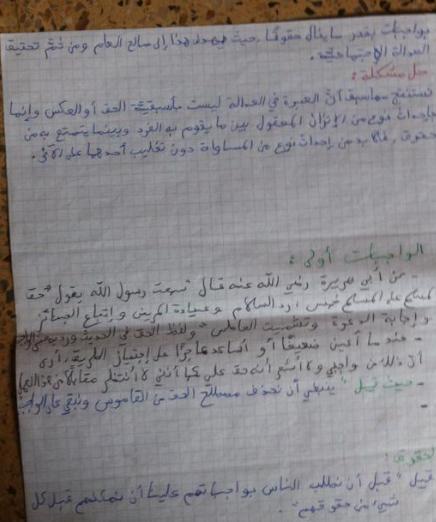 بواجبات بقدر ما ينال حقوقا، حيث هذا إلى صالح العام ومن ثم تحقيق
العدالة الاجتماعية.
حل مشكلة:
نستنتج مما سبق أن العبرة في العدالة ليست بأسبقية الحق أو العكس وإنما
بإحداث نوع من الإتزان المعقول بين ما يقوم به الفرد وبينما يتمتع به من
حقوق، فلا بد من إحداث نوع من المساواة دون تغليب أحدهما على الآخر.
الواجبات أولى:
- عن أبي هريرة رضي الله عنه قال سمعت رسول الله يقول "حق
المسلم على المسلم خمس: رد السلام وعيادة المريض وإتباع الجنائز
وإجابة الدعوة وتشميت العاطس" ولفظ الحق في الحديث ورد
- عندما أعين ضعيفا أو أساعد عاجزا على إجتياز الطريق، أرى
أن ذلك من واجبي ولا أنه حق علي كما أنني لا أنتظر مقابلا من
- حيث قيل "ينبغي أن نحذف مصطلح الحق من القاموس ونبقي على الواجب
-
الحقوق:
قيل "قبل أن نطلب الناس بواجباتهم علينا أن نمكنهم قبل كل
شيء من حقوقهم".